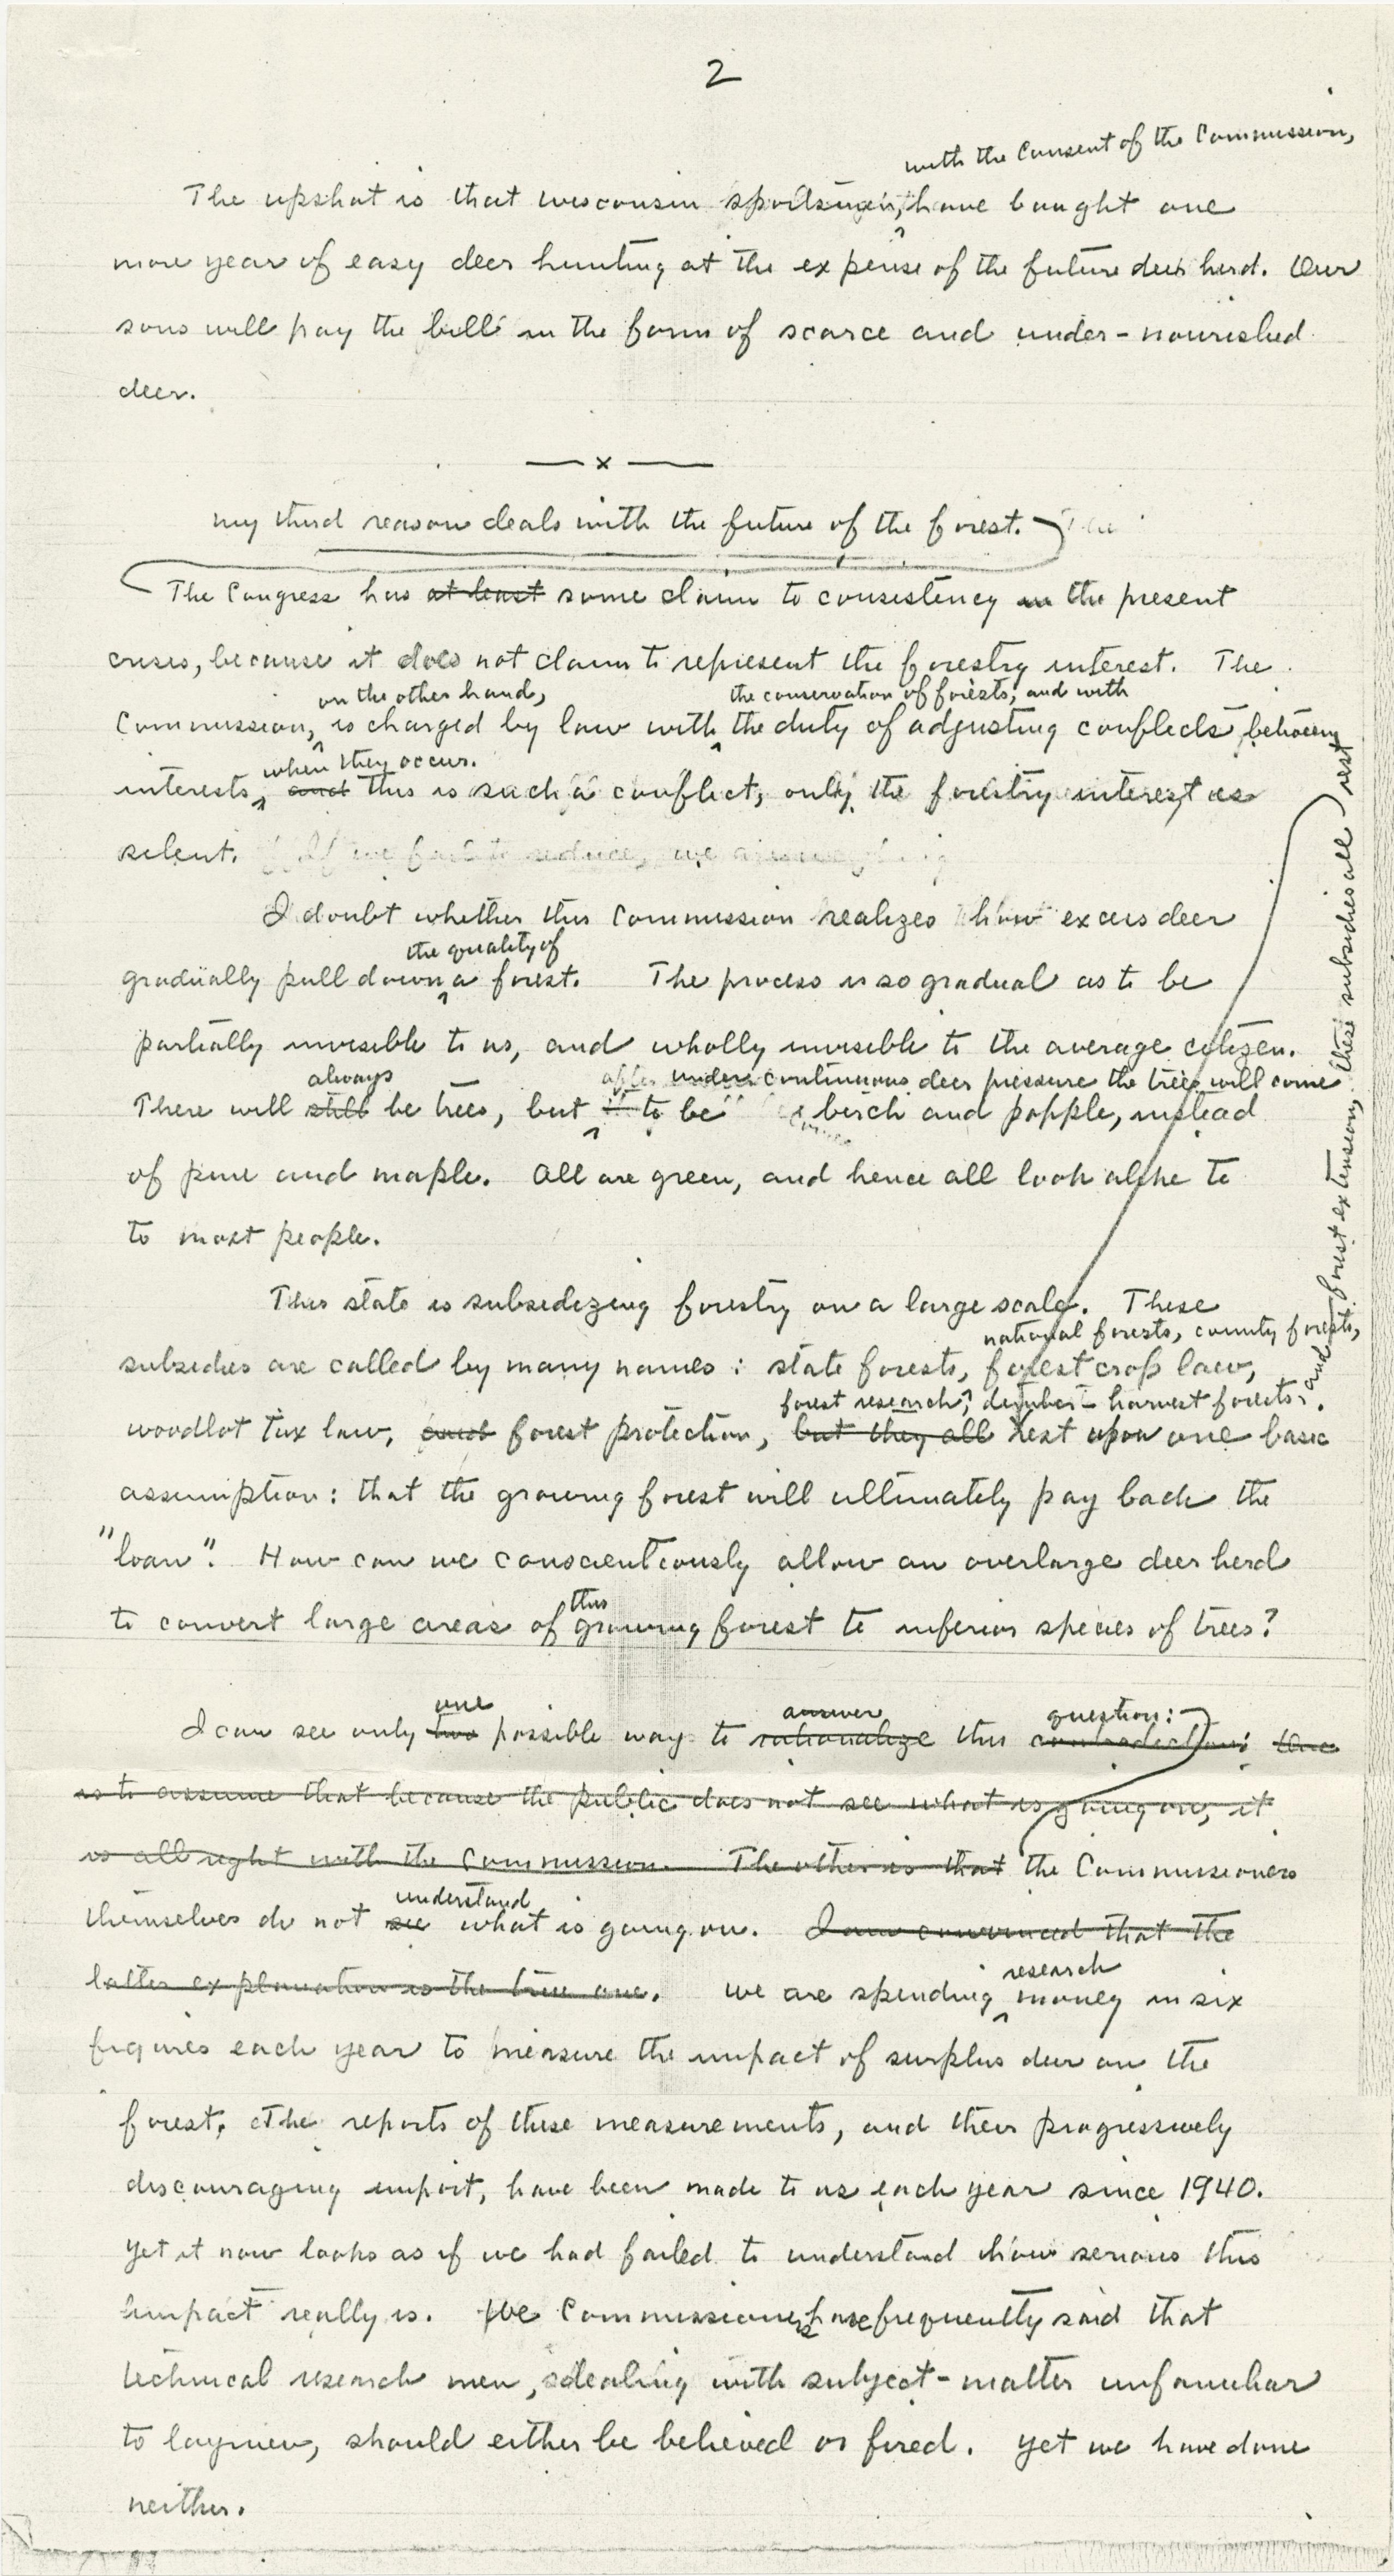 2
with the consent of the Commission,
The upshot is that Wisconsin sportsmen, have bought one
more year of easy deer hunting at the expense of the future deer herd. Our
sons will pay the bill in the form of scarce and under-nourished
deer.
— x —
My third reason deals with the future of the forest. The
The Congress has at least some claim to consistency in the present
crises, because it does not claim to represent the forestry interest. The
on the other hand, the conservation of forests, and with
Commission, is charged by law with the duty of adjusting conflicts between
when they occur.
interests, and this is such a conflict, only the forestry interest is
silent. If we fail to reduce, we are
I doubt whether this Commission realizes how excess deer
the quality of
gradually pull down a forest. The process is so gradual as to be
partially invisible to us, and wholly invisible to the average citizen.
always after under continuous deer pressure the trees will come
There will still be trees, but it to be birch and popple, instead
of pine and maple. All are green, and hence all look alike to
to most people.
This state is subsidizing forestry on a large scale. These
national forests, county forests,
subsidies are called by many names: state forests, forest crop law,
forest research, timber-harvest forests,
and forest extension, these subsidies all rest
woodlot tax law, and forest protection, but they all rest upon one basic
assumption: that the growing forest will ultimately pay back the
"loan". How can we conscientiously allow an overlarge deer herd
this
to convert large areas of growing forest to inferior species of trees?
one answer question:
I can see only two possible way to rationalize this contradiction: One
is to assume that because the public does not see what is going on, it
is all right with the Commission. The other is that the Commissioners
understand
themselves do not see what is going on. I am convinced that the
latter explanation is the true one. We are spending
research
money in six
figures each year to measure the impact of surplus deer on the
forest. The reports of these measurements, and their progressively
discouraging import, have been made to us each year since 1940.
Yet it now looks as if we had failed to understand how serious this
impact really is. We Commissioners have frequently said that
technical research men, dealing with subject-matter unfamiliar
to laymen, should either be believed or fired. Yet we have done
neither.